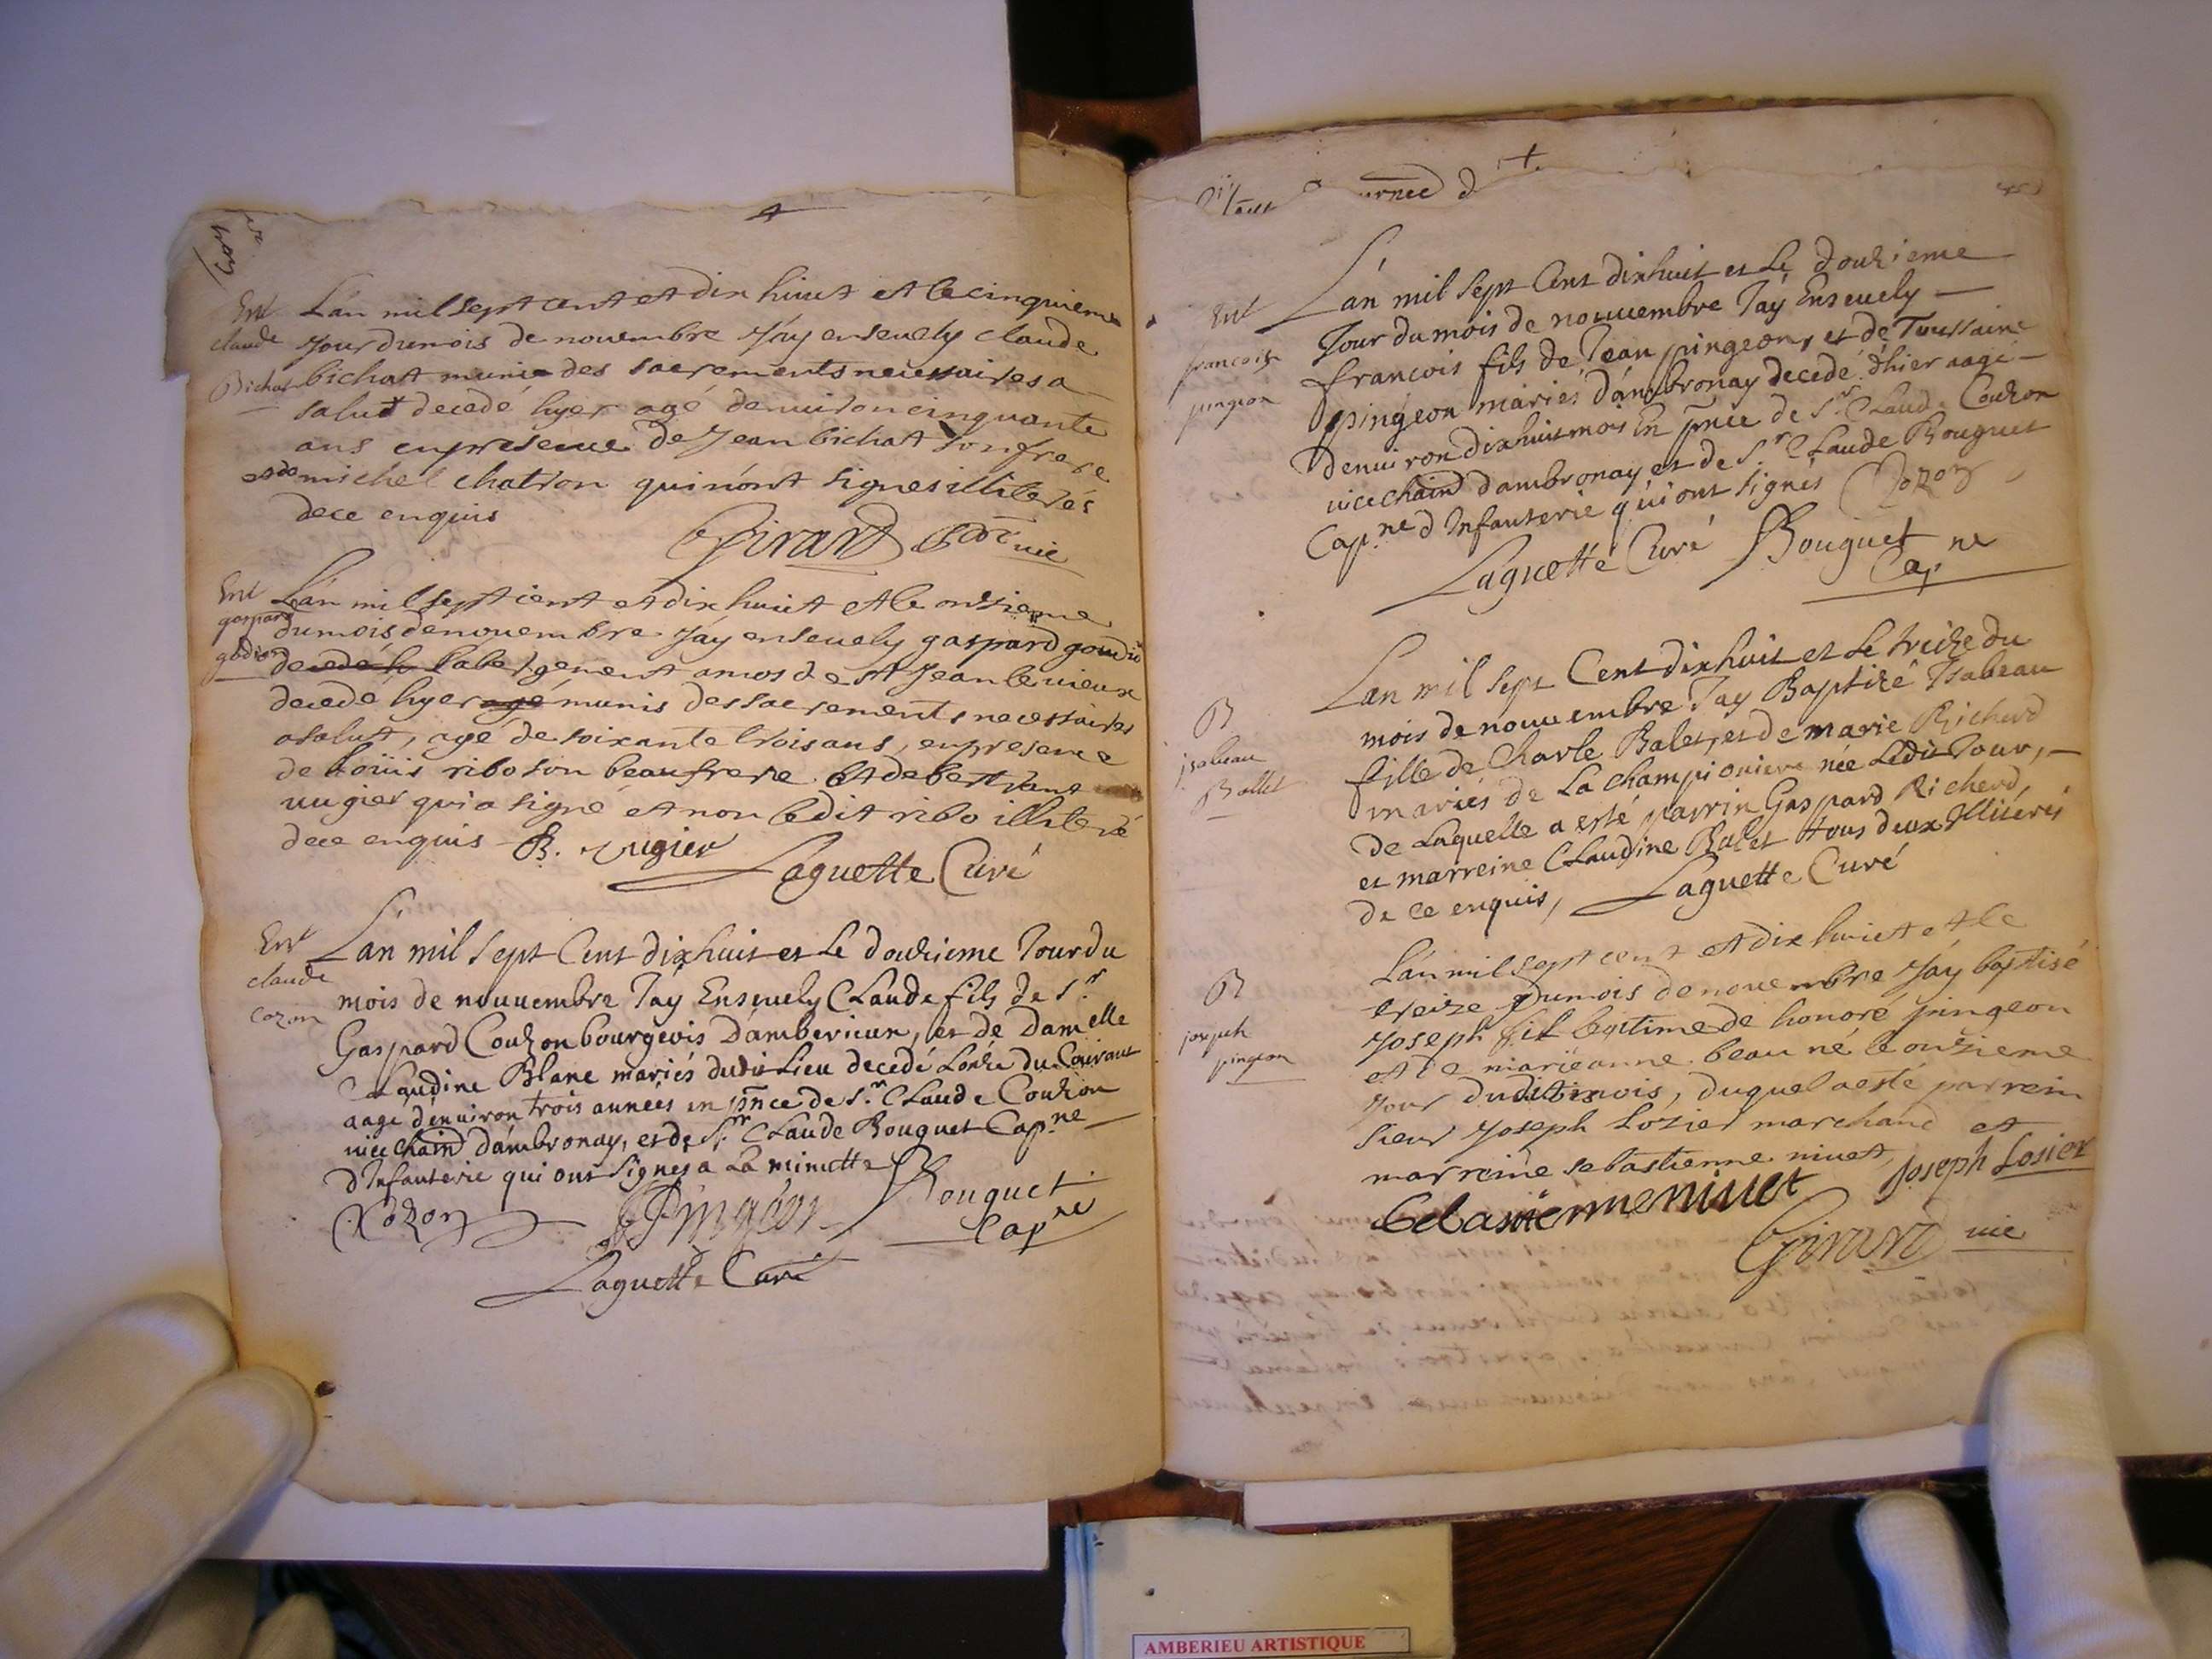 Ent
claude
Bichat
L'an mil sept cent et dix huict et le cinquieme
jour du mois de novembre j'ay ensevely claude
bichat munie des sacrements necessaires a
salut decedé hyer agé denviron cinquante
ans en presence de Jean bichat son frere
et de michel chatron qui n'ont signes illiterés
de ce enquis
Girard vic
Ent
gaspard
godio
L'an mil sept cent et dix huict et le onzieme
du mois de novembre j'ay ensevely gaspard
amos de st Jean le vieux
decedé hyer agé munis des sacrements necessaires
a salut, agé de soixante trois ans, en presence
de loüis ribo son beau frere et de bertrand
vugier qui a signé et non ledit ribo illiteré
de ce enquis B. vugier
Laguette Curé
Ent
claude
cozon
L'an mil sept Cent dixhuit et Le douzieme Jour du
mois de nouuembre Jay Enseuely CLaude fils de Sr
Gaspard Couzon bourgeois D'amberieux, et de Damelle
CLaudine Blanc mariés dudit Lieu decedé Lonze du Courant
aagé d'enuiron trois années en pnce de Sr CLaude Couzon
vice chain d'ambronay, et de Sr CLaude Bouguet Capne
d'Infanterie qui ont signés a La minutte
Cozon Pingeon Bouguet
Capne
Laguette Curé
Ent
francois
pingeon
L'an mil sept Cent dixhuit et Le douzieme
Jour du mois de nouuembre Jay Enseuely
francois fils de Jean pingeon, et de Toussaine
pingeon mariés d'ambronay decedé d'hier aagé
denuiron dixhuit mois En pnce de Sr CLaude Couzon
vice chain d'ambronay et de Sr CLaude Bouguet
Capne d'Infanterie qui ont signés Cozon
Laguette Curé Bouguet
Capne
B
jsabeau
Ballet
L'an mil sept Cent dixhuit et Le treize du
mois de nouuembre Jay Baptizé Isabeau
fille de Charle Balet, et de marie Richerd
mariés de La championiere née Ledit Jour,
de Laquelle a esté parrin Gaspard Richerd,
et marreine CLaudine Balet tous deux Illiterés
de ce enquis, Laguette Curé
B
joseph
pingeon
L'an mil sept cent et dix huict et le
treize du mois de novembre j'ay baptisé
Joseph fils legitime de honoré pingeon
et de marieanne beau né le onzieme
jour dudit mois, duquel a esté parrein
sieur Joseph Losier marchand et
marreine sebastienne nivet,
Joseph Losier
Sebastienne nivet
Girard vic
AMBERIEU ARTISTIQUE